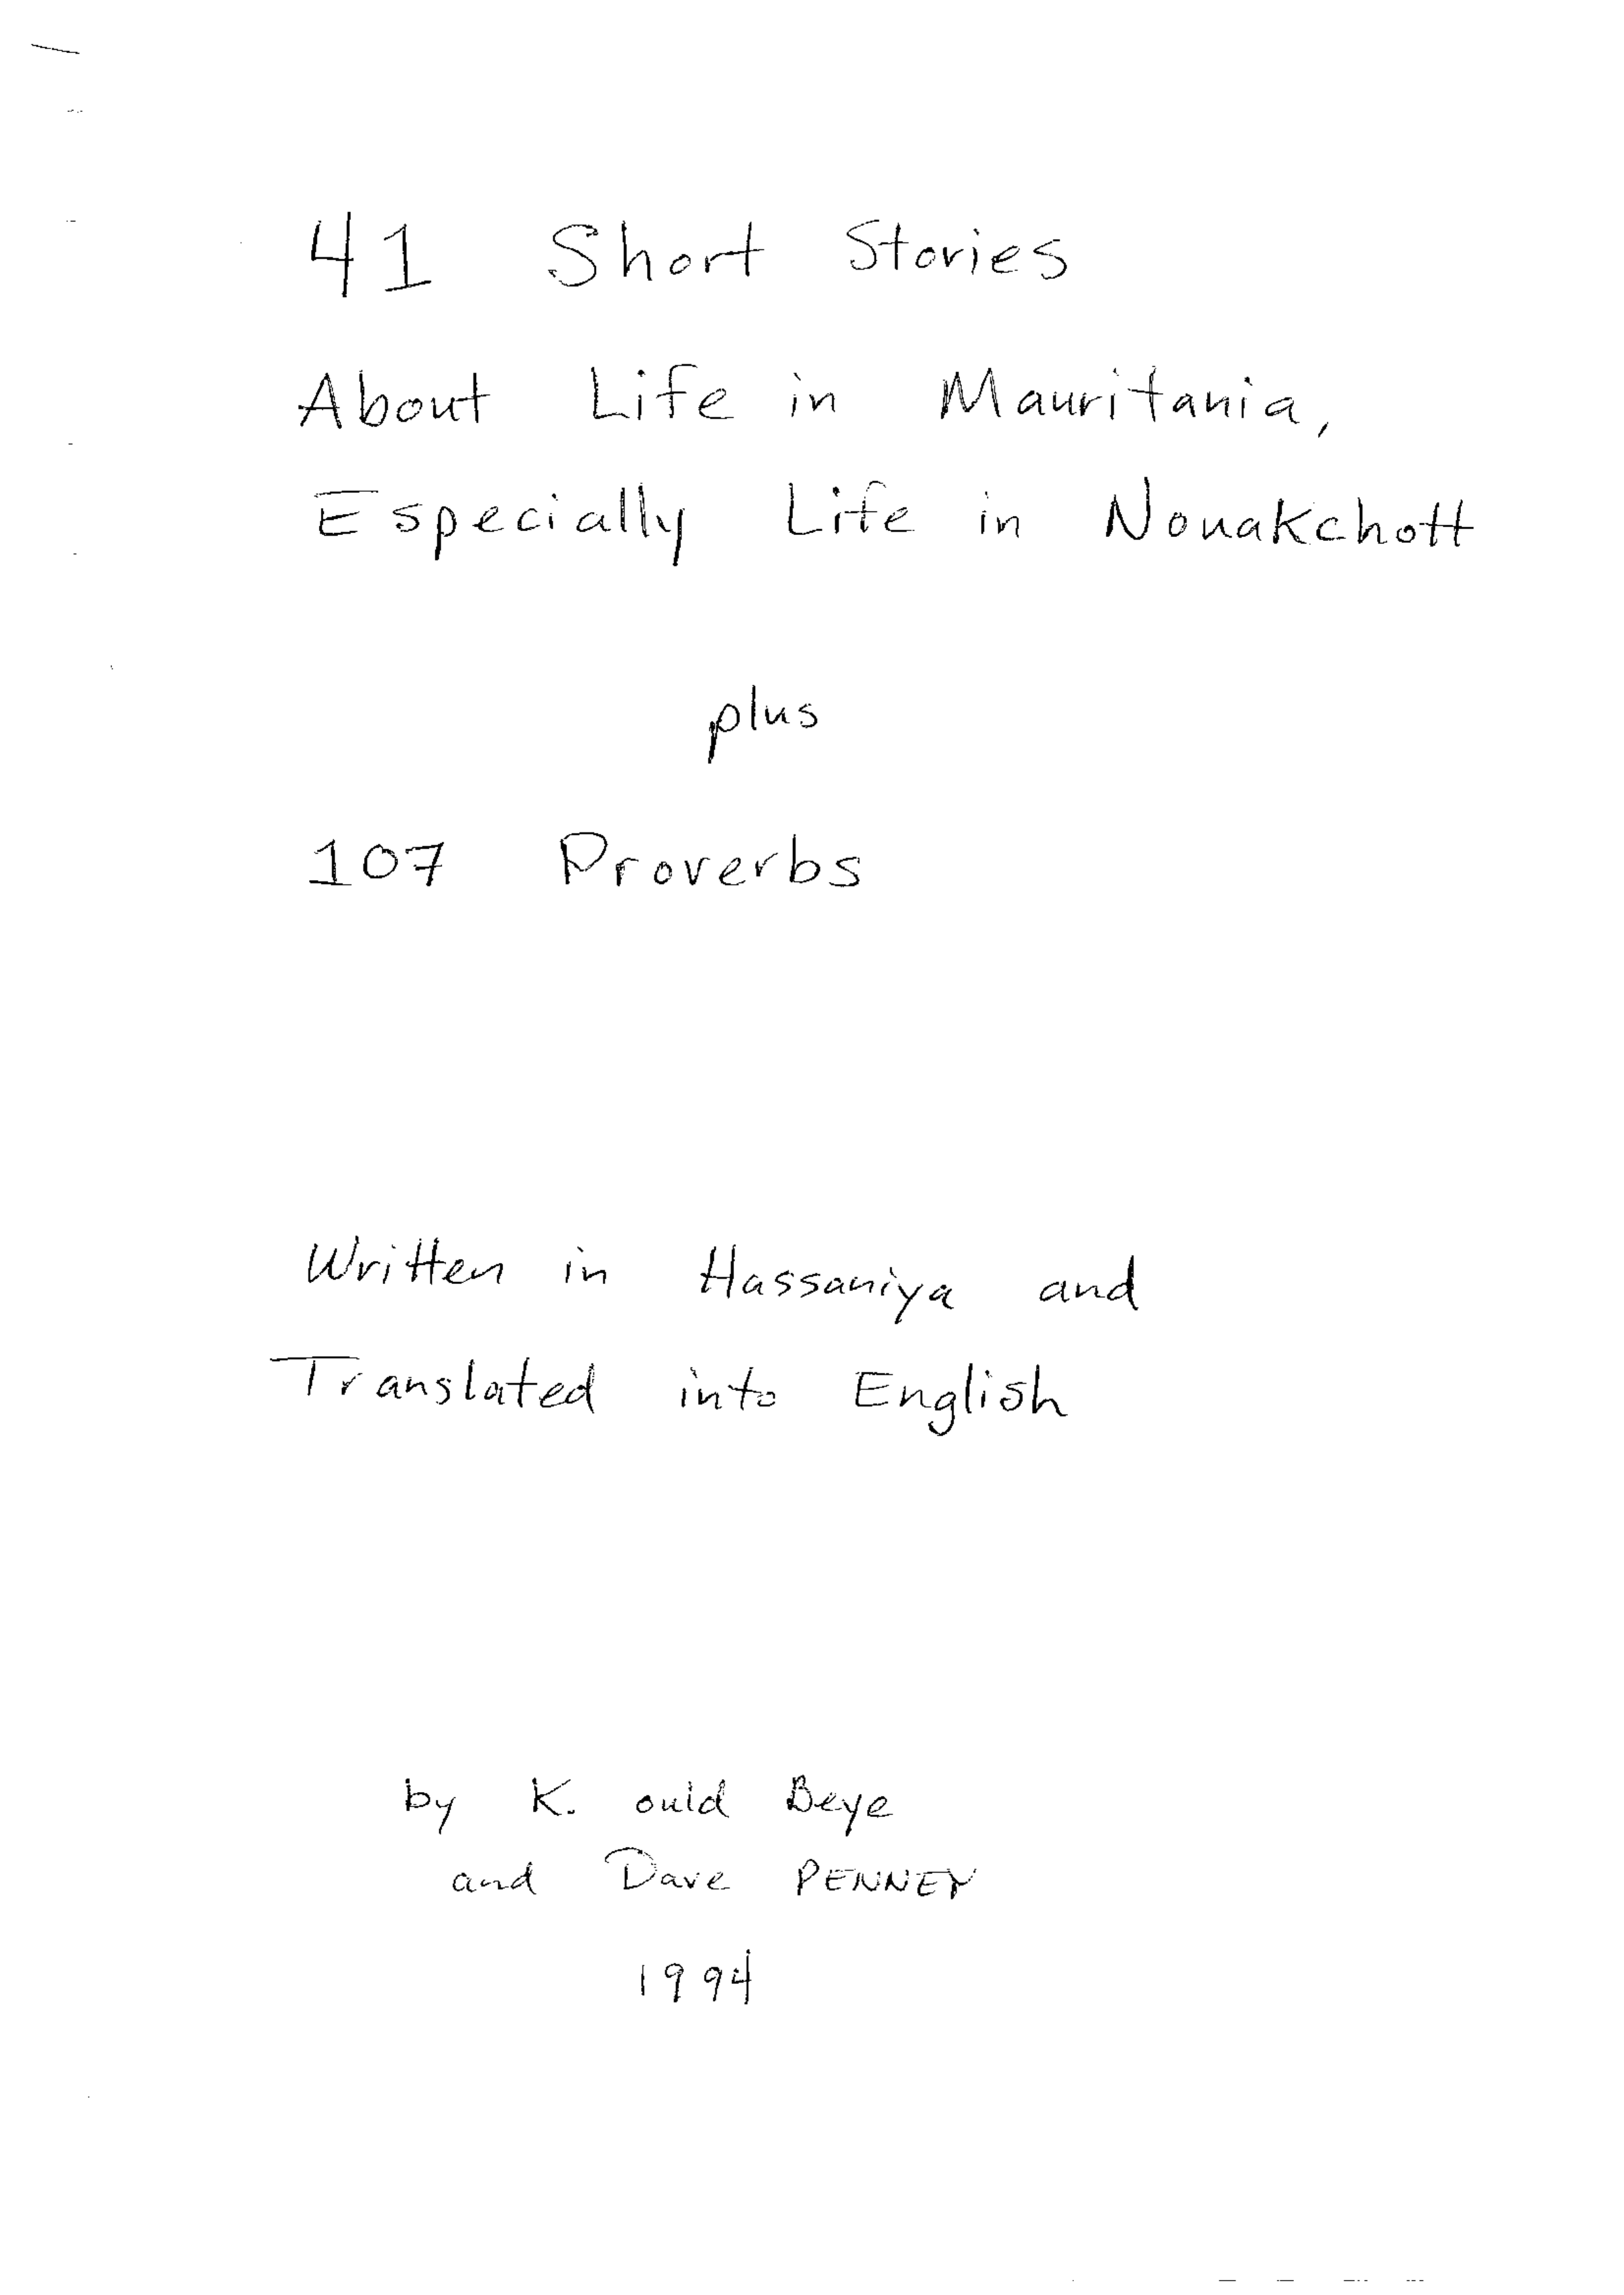 41 Short Stories
About Life in Mauritania,
Especially Life in Nouakchott
plus
107 Proverbs
Written in Hassaniya and
Translated into English
by K. ould Beye
and Dave PENNEY
1994